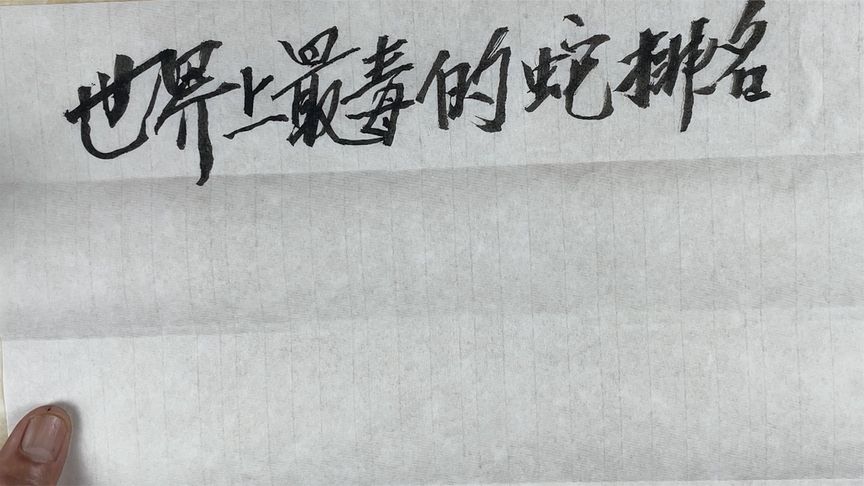 世界上最毒的蛇排名